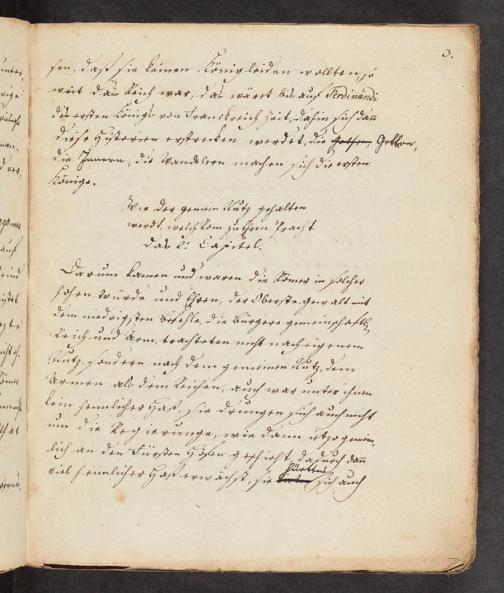 3.
sen, daß sie keinen König leiden wollten, so
weit das Reich war, das wäret bis auf Ferdinandi
des ersten Königs von Frankreich Zeit, dahin sich dann
diese Historien erstrecken werdet, die Gothen, Gelten,
die, die Wandlern machen sich die ersten
Könige.
Wie der gemein Nutz gehalten
werdt, welch Rom zu ihrem Pracht
das 2. Capitel.
Darum kamen und waren die Römer in solcher
hohen Würde und Ehren, der Oberste gewalt mit
dem niedrigsten Befehle, die Bürgere gemeinschaftl.
Reich und Arm, trachteten nicht nach eigenem
Nutz, sondern nach dem gemeinen Nutz, dem
Armen als dem Reichen, auch war unter ihnen
kein heimlicher Haß, sie drungen sich auch nicht
um die Regierunge, wie dann itzo gemein,
lich an den Fürsten Höfen geschieht, dadurch dann
viel heimlicher Haß erwächst, sie sich auch